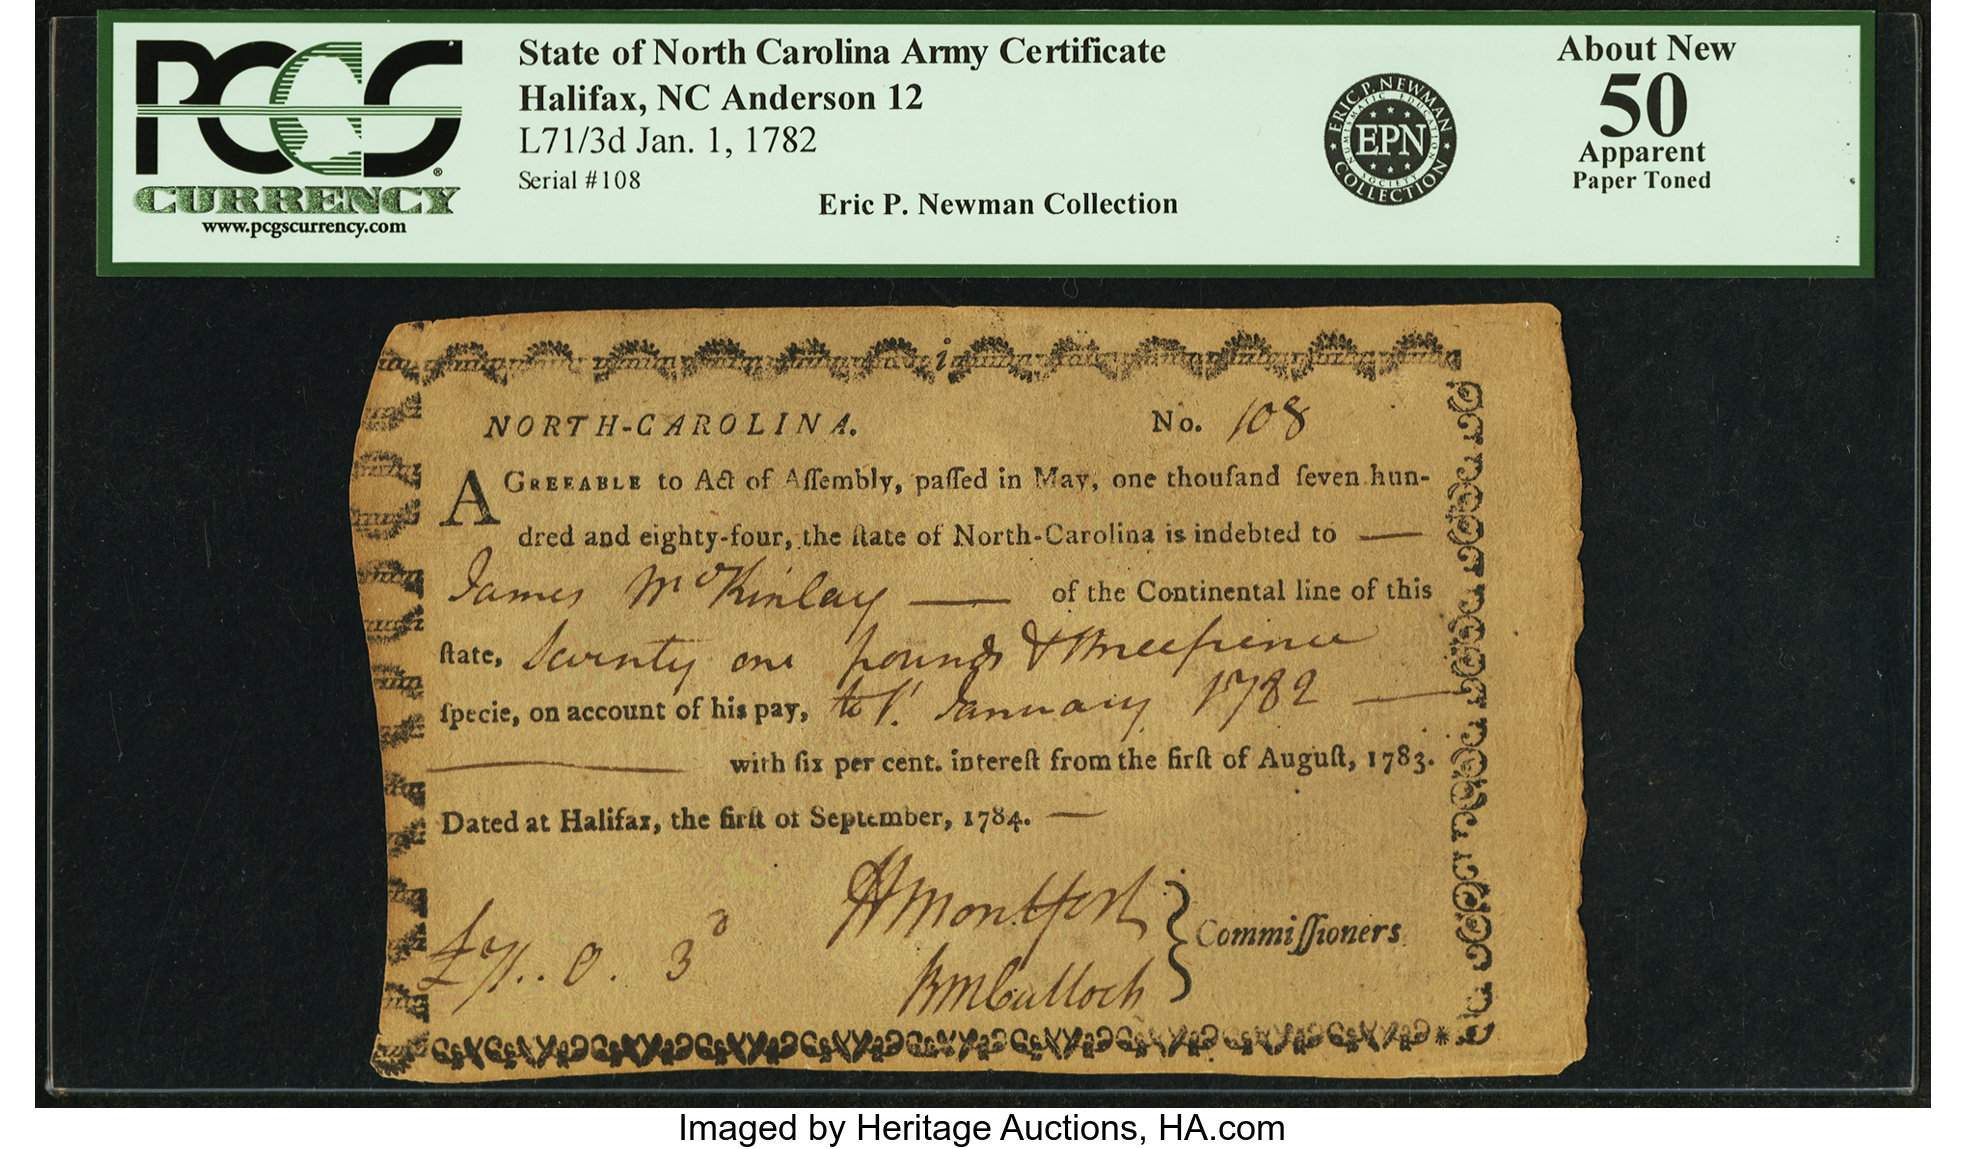 PCGS
CURRENCY
www.pcgscurrency.com
State of North Carolina Army Certificate
Halifax, NC Anderson 12
L71/3d Jan. 1, 1782
Serial #108
Eric P. Newman Collection
ERIC P. NEWMAN
NUMISMATIC EDUCATION
EPN
SOCIETY
COLLECTION
About New
50
Apparent
Paper Toned
NORTH-CAROLINA. No. 108
AGREEABLE to Act of Aſſembly, paſſed in May, one thouſand ſeven hun-
dred and eighty-four, the ſtate of North-Carolina is indebted to —
James McKinlay — of the Continental line of this
ſtate, Seventy one pounds & threepence
ſpecie, on account of his pay, to 1. January 1782 —
— with ſix per cent. intereſt from the firſt of Auguſt, 1783.
Dated at Halifax, the firſt of September, 1784. —
HMontfort
£71..0.3d Commiſſioners
BMCulloch
Imaged by Heritage Auctions, HA.com